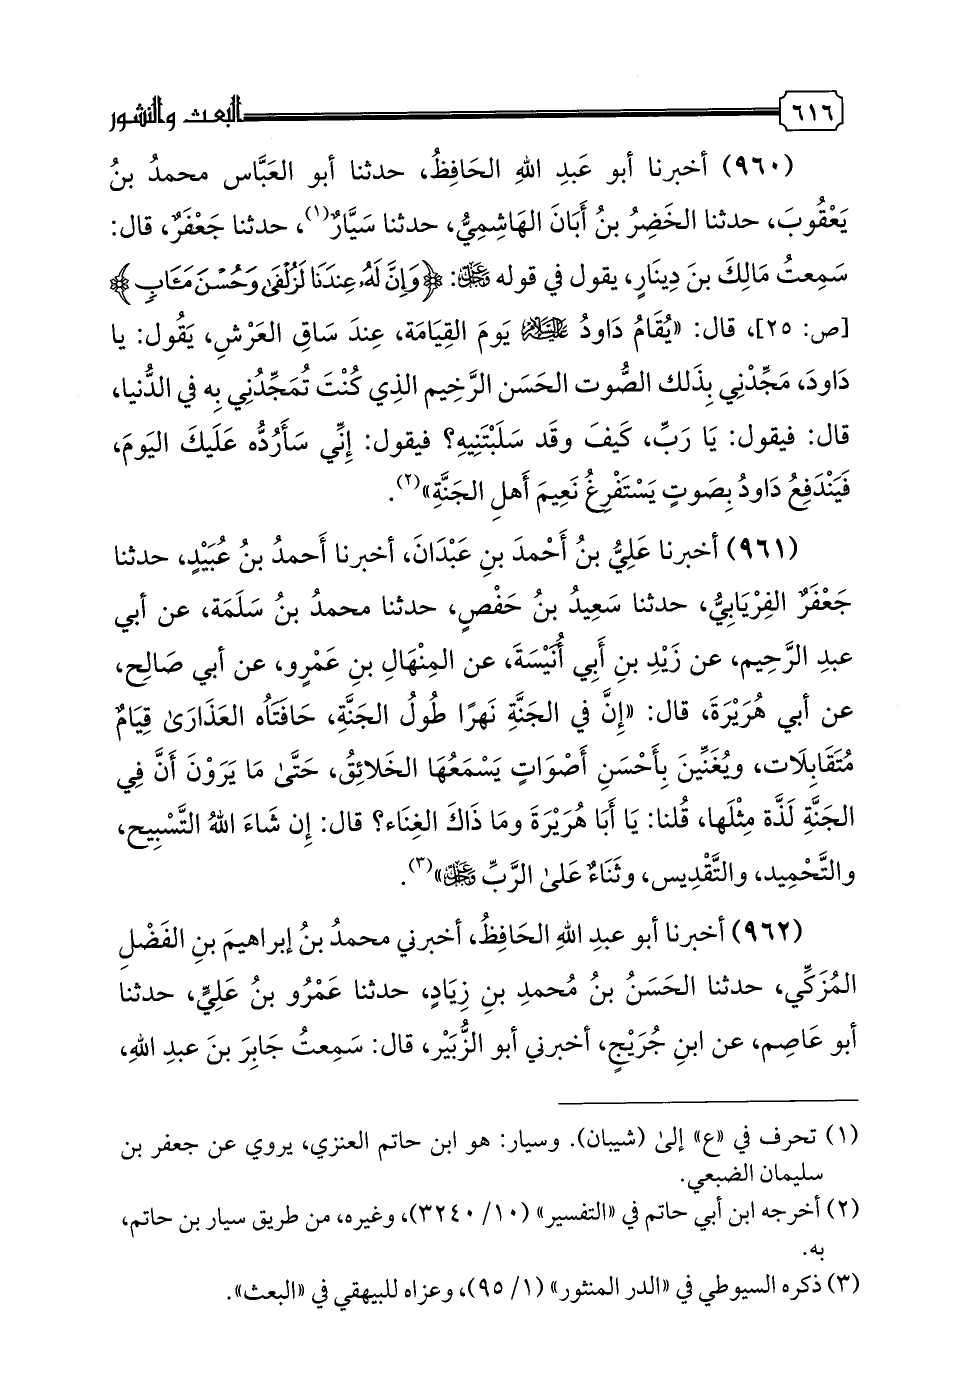 ٦١٦ البعث والنشور
(٩٦٠) أخبرنا أبو عَبدِ اللهِ الحَافِظُ، حدثنا أبو العَبَّاس محمدُ بنُ
يَعْقُوبَ، حدثنا الخَضِرُ بنُ أَبَانَ الهَاشِمِيُّ، حدثنا سَيَّارٌ(١)، حدثنا جَعْفَرٌ، قال:
سَمِعتُ مَالِكَ بنَ دِينَارٍ، يقول في قوله ﷿: ﴿وَإِنَّ لَهُۥ عِندَنَا لَزُلۡفَىٰ وَحُسۡنَ مَـَٔابٖ﴾
[ص: ٢٥]، قال: «يُقَامُ دَاودُ ﵇ يَومَ القِيَامَة، عِندَ ساقِ العَرْشِ، يَقُول: يا
دَاودَ، مَجِّدْنِي بِذَلك الصُّوت الحَسَن الرَّخِيم الذِي كُنْتَ تُمَجِّدُنِي بِه في الدُّنيا،
قال: فيقول: يَا رَبِّ، كَيفَ وقَد سَلَبْتَنِيهِ؟ فيقول: إِنِّي سَأَرُدُّه عَلَيكَ اليَومَ،
فَيَنْدَفِعُ دَاودُ بِصَوتٍ يَسْتَفْرِغُ نَعِيمَ أَهلِ الجَنَّةِ»(٢).
(٩٦١) أخبرنا عَلِيُّ بنُ أَحْمدَ بنِ عَبْدَانَ، أخبرنا أَحمدُ بنُ عُبَيْدٍ، حدثنا
جَعْفَرٌ الفِرْيَابِيُّ، حدثنا سَعِيدُ بنُ حَفْصٍ، حدثنا محمدُ بنُ سَلَمَة، عن أبي
عبدِ الرَّحِيم، عن زَيْدِ بنِ أَبِي أُنَيْسَةَ، عن المِنْهَالِ بنِ عَمْرٍو، عن أبي صَالِح،
عن أبي هُرَيْرَةَ، قال: «إِنَّ في الجَنَّةِ نَهرًا طُولُ الجَنَّةِ، حَافَتَاُه العَذَارَىٰ قِيَامٌ
مُتَقَابِلَات، ويُغَنِّينَ بِأَحْسَنِ أَصْوَاتٍ يَسْمَعُهَا الخَلائِقُ، حَتَّىٰ مَا يَرَوْنَ أَنَّ فِي
الجَنَّةِ لَذَّة مِثْلَها، قُلنا: يَا أَبَا هُرَيْرَةَ ومَا ذَاكَ الغِنَاء؟ قال: إِن شَاءَ اللهُ التَّسْبِيح،
والتَّحْمِيد، والتَّقْدِيس، وثَنَاءٌ عَلىٰ الرَّبِّ ﷿»(٣).
(٩٦٢) أخبرنا أبو عبدِ اللهِ الحَافِظُ، أخبرني محمدُ بنُ إبراهيمَ بنِ الفَضْلِ
المُزَكِّي، حدثنا الحَسَنُ بنُ مُحمدِ بنِ زِيَادٍ، حدثنا عَمْرُو بنُ عَلِيٍّ، حدثنا
أبو عَاصِم، عن ابنِ جُرَيْجٍ، أخبرني أبو الزُّبَيْر، قال: سَمِعتُ جَابِرَ بنَ عبدِ اللهِ،
(١) تحرف في «ع» إلىٰ (شيبان). وسيار: هو ابن حاتم العنزي، يروي عن جعفر بن
سليمان الضبعي.
(٢) أخرجه ابن أبي حاتم في «التفسير» (١٠/ ٣٢٤٠)، وغيره، من طريق سيار بن حاتم،
به.
(٣) ذكره السيوطي في «الدر المنثور» (١/ ٩٥)، وعزاه للبيهقي في «البعث».